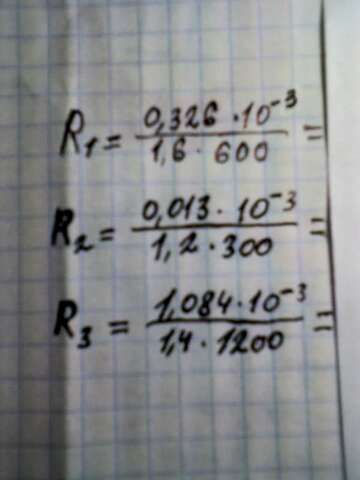 R₁ = 0,326 · 10⁻³ / 1,6 · 600 =
R₂ = 0,013 · 10⁻³ / 1,2 · 300 =
R₃ = 1,084 · 10⁻³ / 1,4 · 1200 =